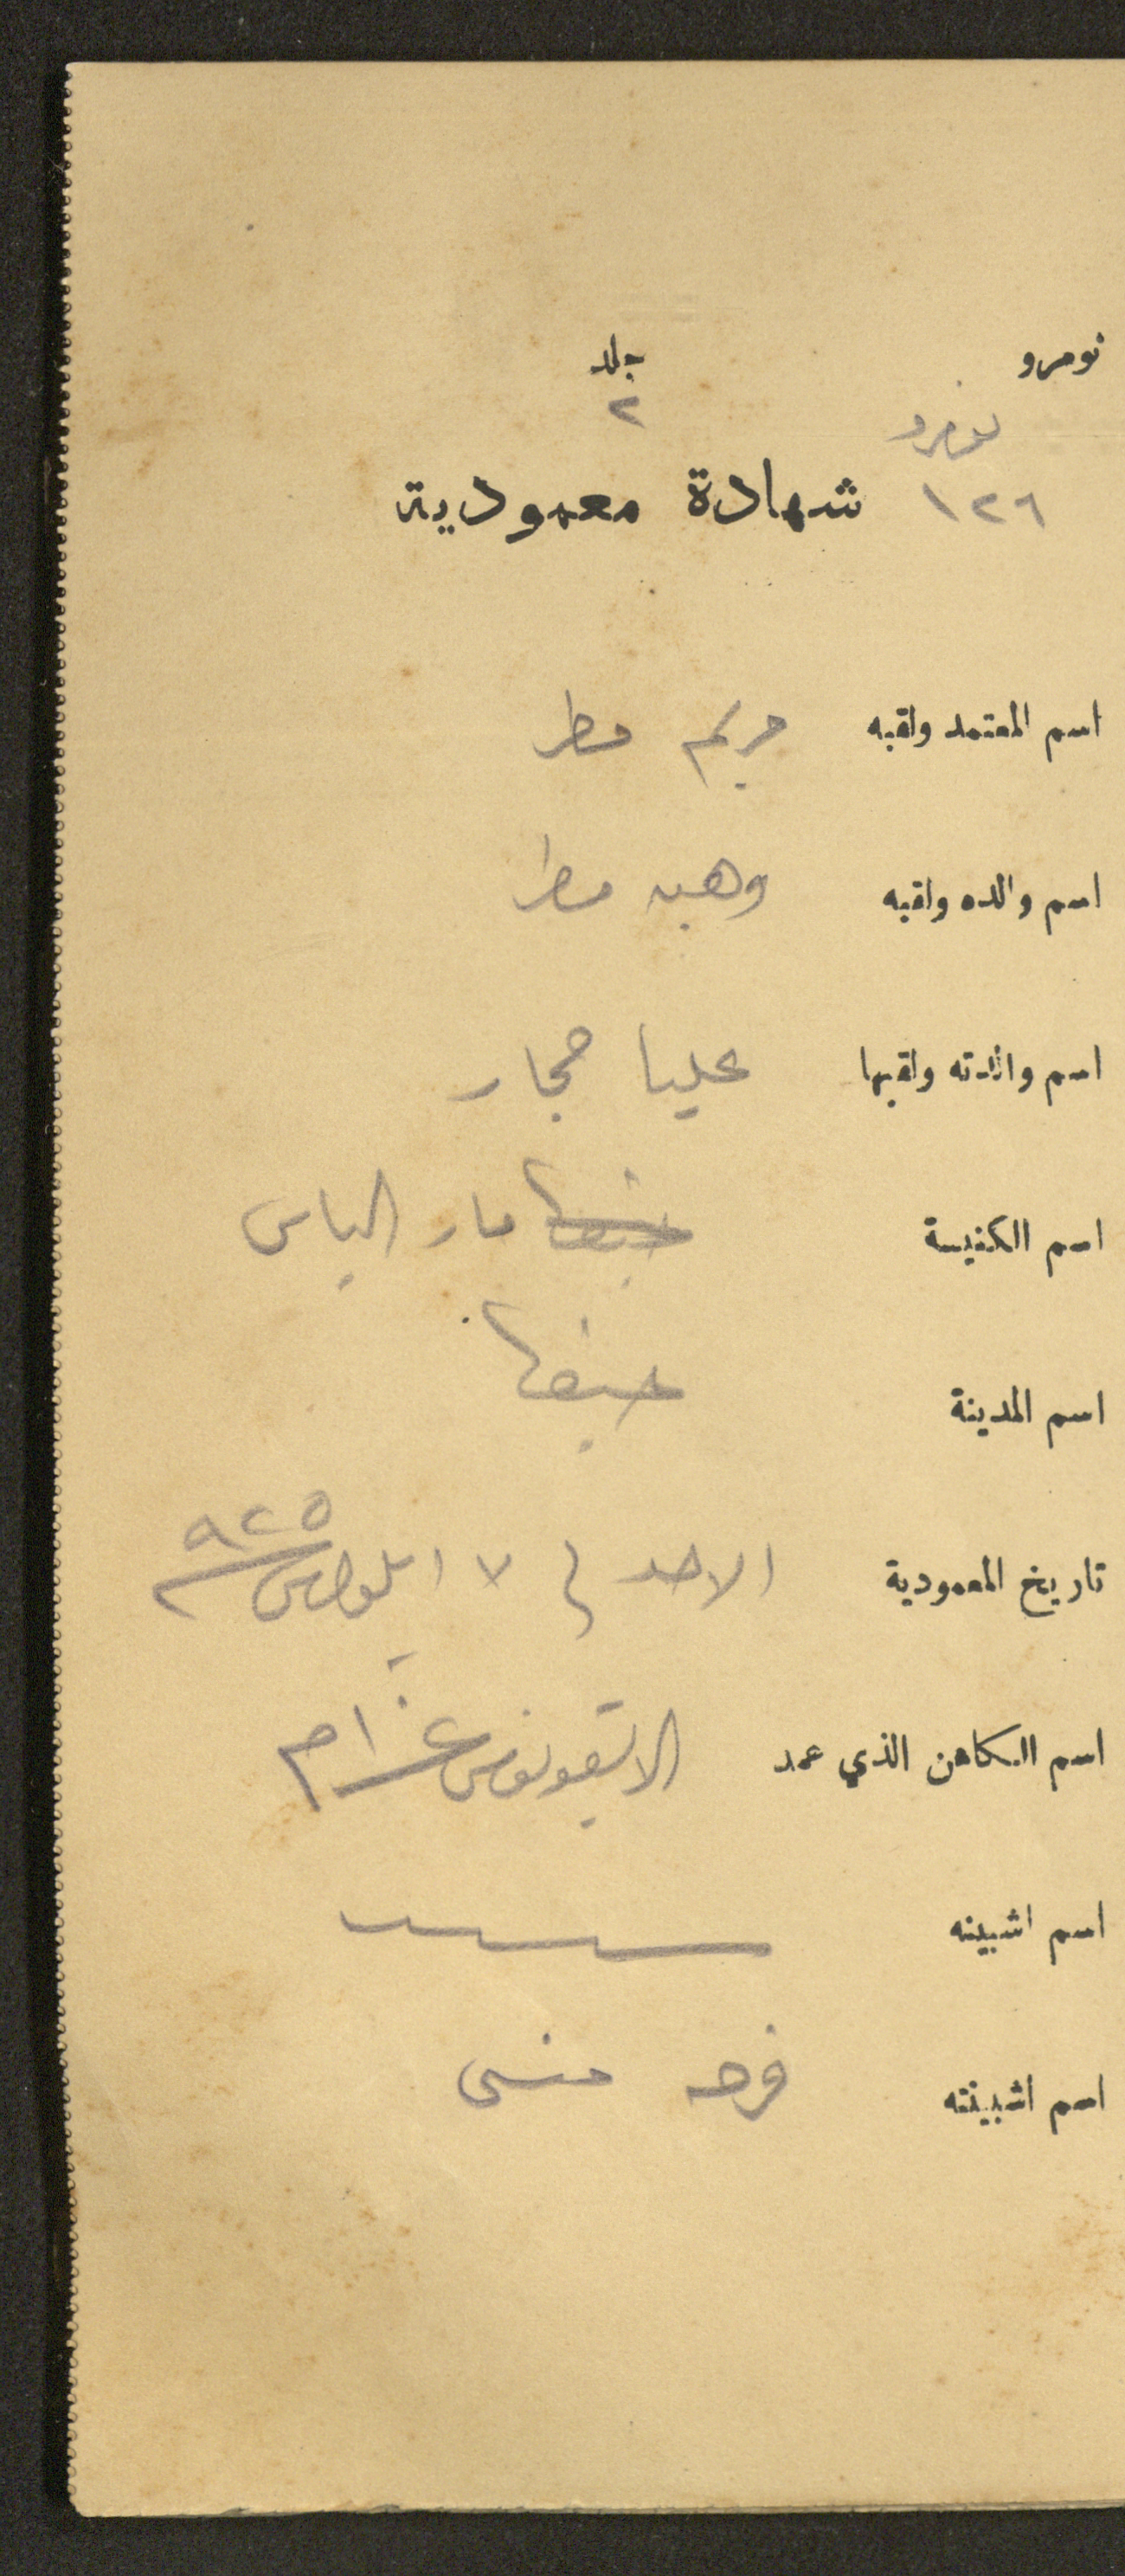 نومرو جلد
نومرو ٢
١٢٦ شهادة معمودية
اسم المعتمد ولقبه مريم مطر
اسم والده ولقبه وهبه مطر
اسم والدته ولقبها عليا حجار
اسم الكنيسة حيفا مار الياس
اسم المدينة حيفا
تاريخ المعمودية الاحد في ٧ ايلول سنة ٩٢٥
اسم الكاهن الذي عمد الايقونوموس عزام
اسم اشبينه
اسم اشبينته فرحه منسى